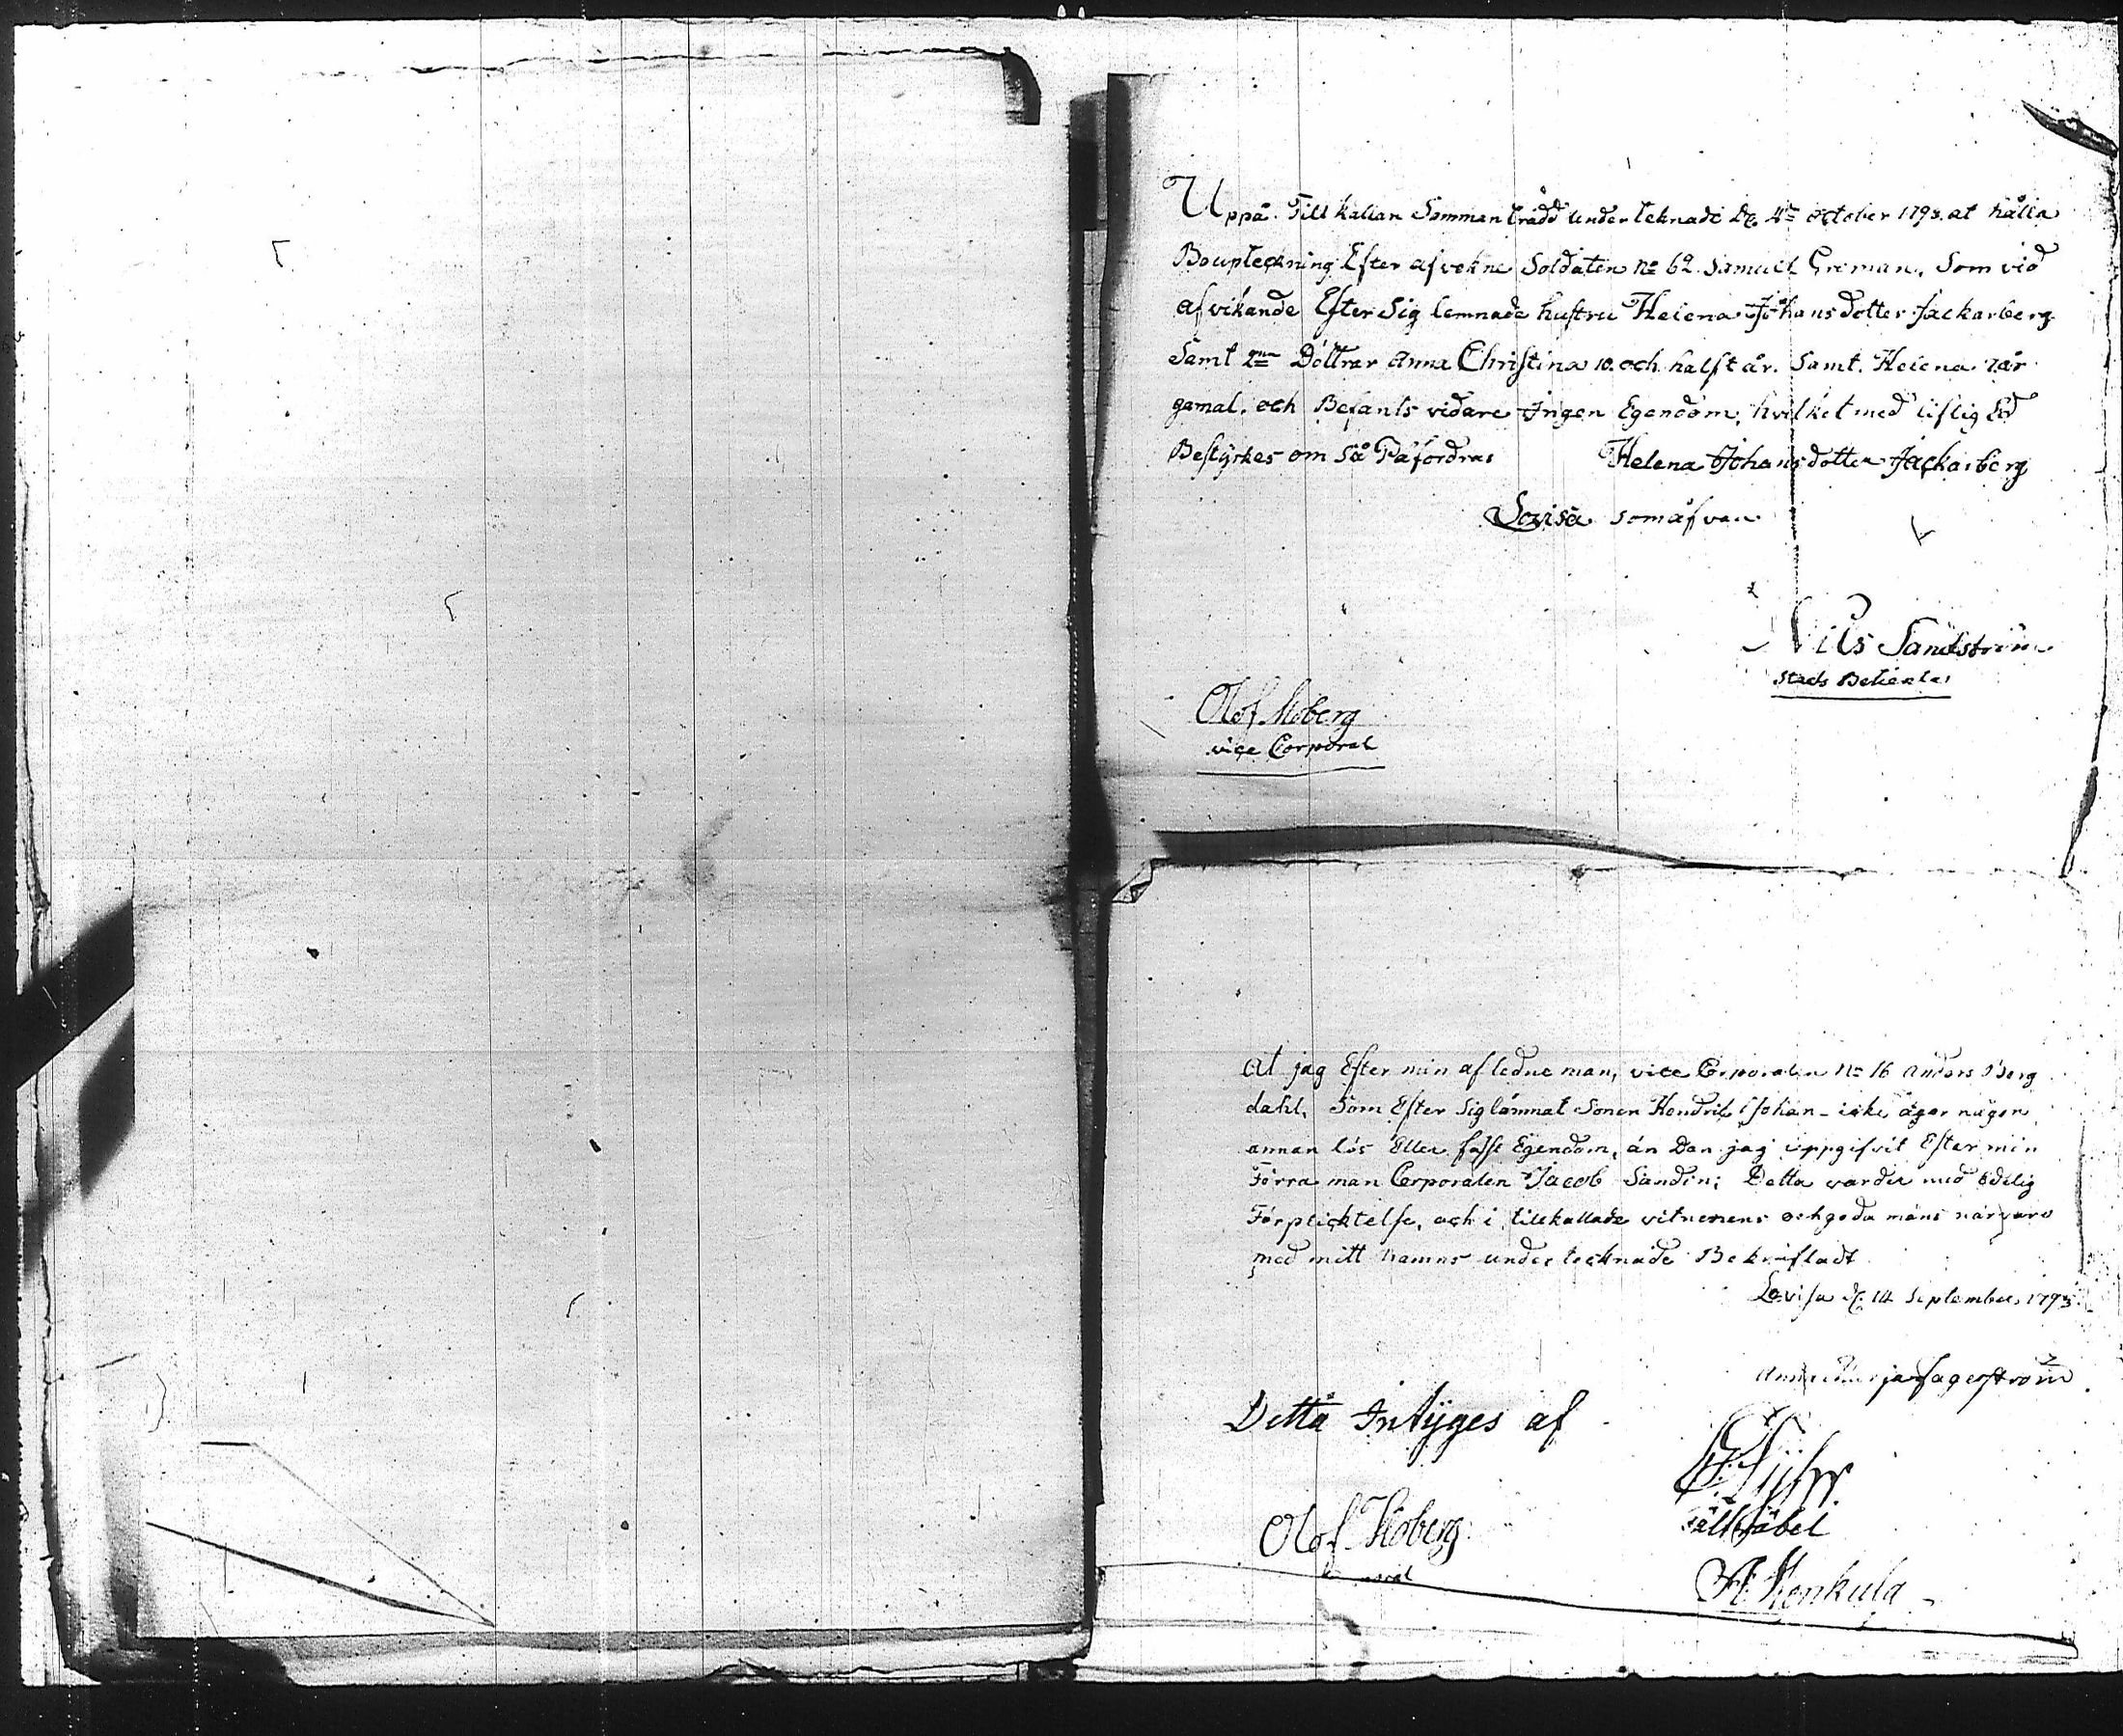 Uppå Tillkallan Sammanträdd undertecknade d. 4de october 1793. at hålla
Boupteckning Efter afvekne Soldaten No 62. Samuel Greman, Som vid
afvikande Efter Sig lemnade hustru Helena Johansdotter Jackarberg
Samt 2ne Döttrar Anna Christina 10. och halft år. Samt. Helena 7 år
gamal. och Befants vidare Ingen Egendom, hvilket med liflig Ed
Bestyrkes om Så Påfordras Helena Johansdotter Jackarberg
Lovisa som åfvan
Nils Sandström
Stads Betiente
Olof Moberg
vice Corporal
At jag Efter min afledne man, vice Corporalen No 16 Anders Berg
dahl, Som Efter Sig lämnat Sonen Hendrik Johan - icke äger någon
annan lös Eller fast Egendom, än Den jag uppgifvit Efter min
Förra man Corporalen Jacob Sandin; Detta varder med Edelig
Förplicktelse, och i tillkallade vitnenens och goda mäns närvaro
med mitt namns undertecknade Bekräftadt
Lovisa d. 14 September 1793
Anna jagerström
Detta Intyges af
Fält
Olof Moberg